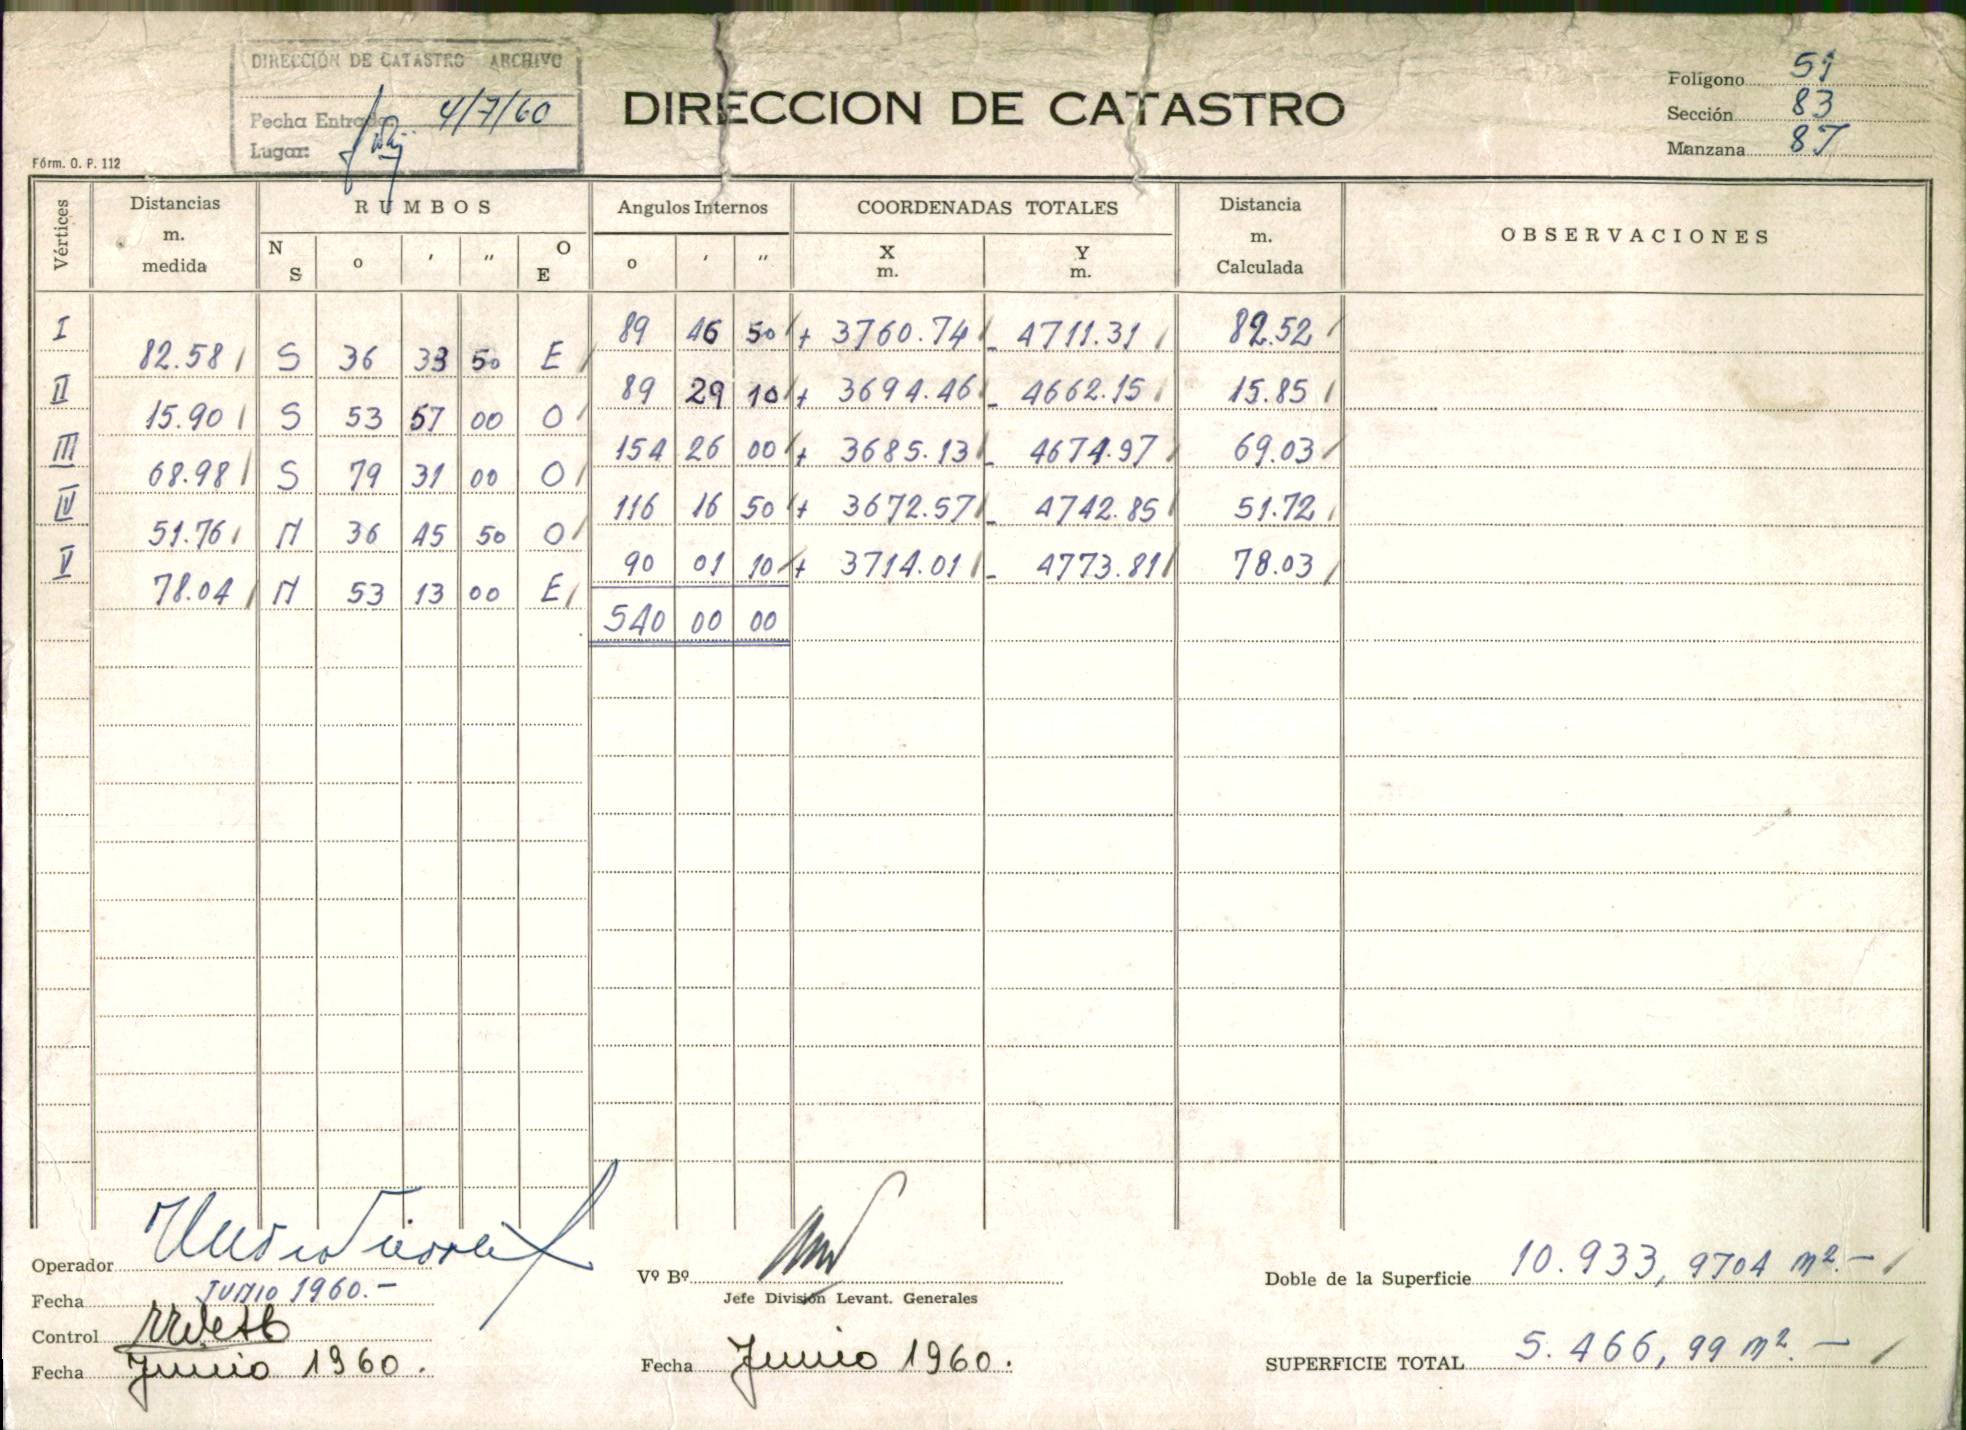 DIRECCIÓN DE CATASTRO ARCHIVO
Fecha Entrada 4/7/60
Lugar:
DIRECCION DE CATASTRO
Polígono 51
Sección 83
Manzana 87
Fórm. O. P. 112
Vértices Distancias m. medida RUMBOS Angulos Internos COORDENADAS TOTALES Distancia m. Calculada OBSERVACIONES
N S o ' " O E o ' " X m. Y m.
I 89 46 50 + 3760.74 - 4711.31 82.52
82.58 S 36 33 50 E
II 89 29 10 + 3694.46 - 4662.15 15.85
15.90 S 53 57 00 O
III 154 26 00 + 3685.13 - 4674.97 69.03
68.98 S 79 31 00 O
IV 116 16 50 + 3672.57 - 4742.85 51.72
51.76 N 36 45 50 O
V 90 01 10 + 3714.01 - 4773.81 78.03
78.04 N 53 13 00 E
540 00 00
Operador
Fecha JUNIO 1960.-
Control
Fecha Junio 1960.
Vº Bº
Jefe División Levant. Generales
Fecha Junio 1960.
Doble de la Superficie 10.933,9704 m².-
SUPERFICIE TOTAL 5.466,99 m².-